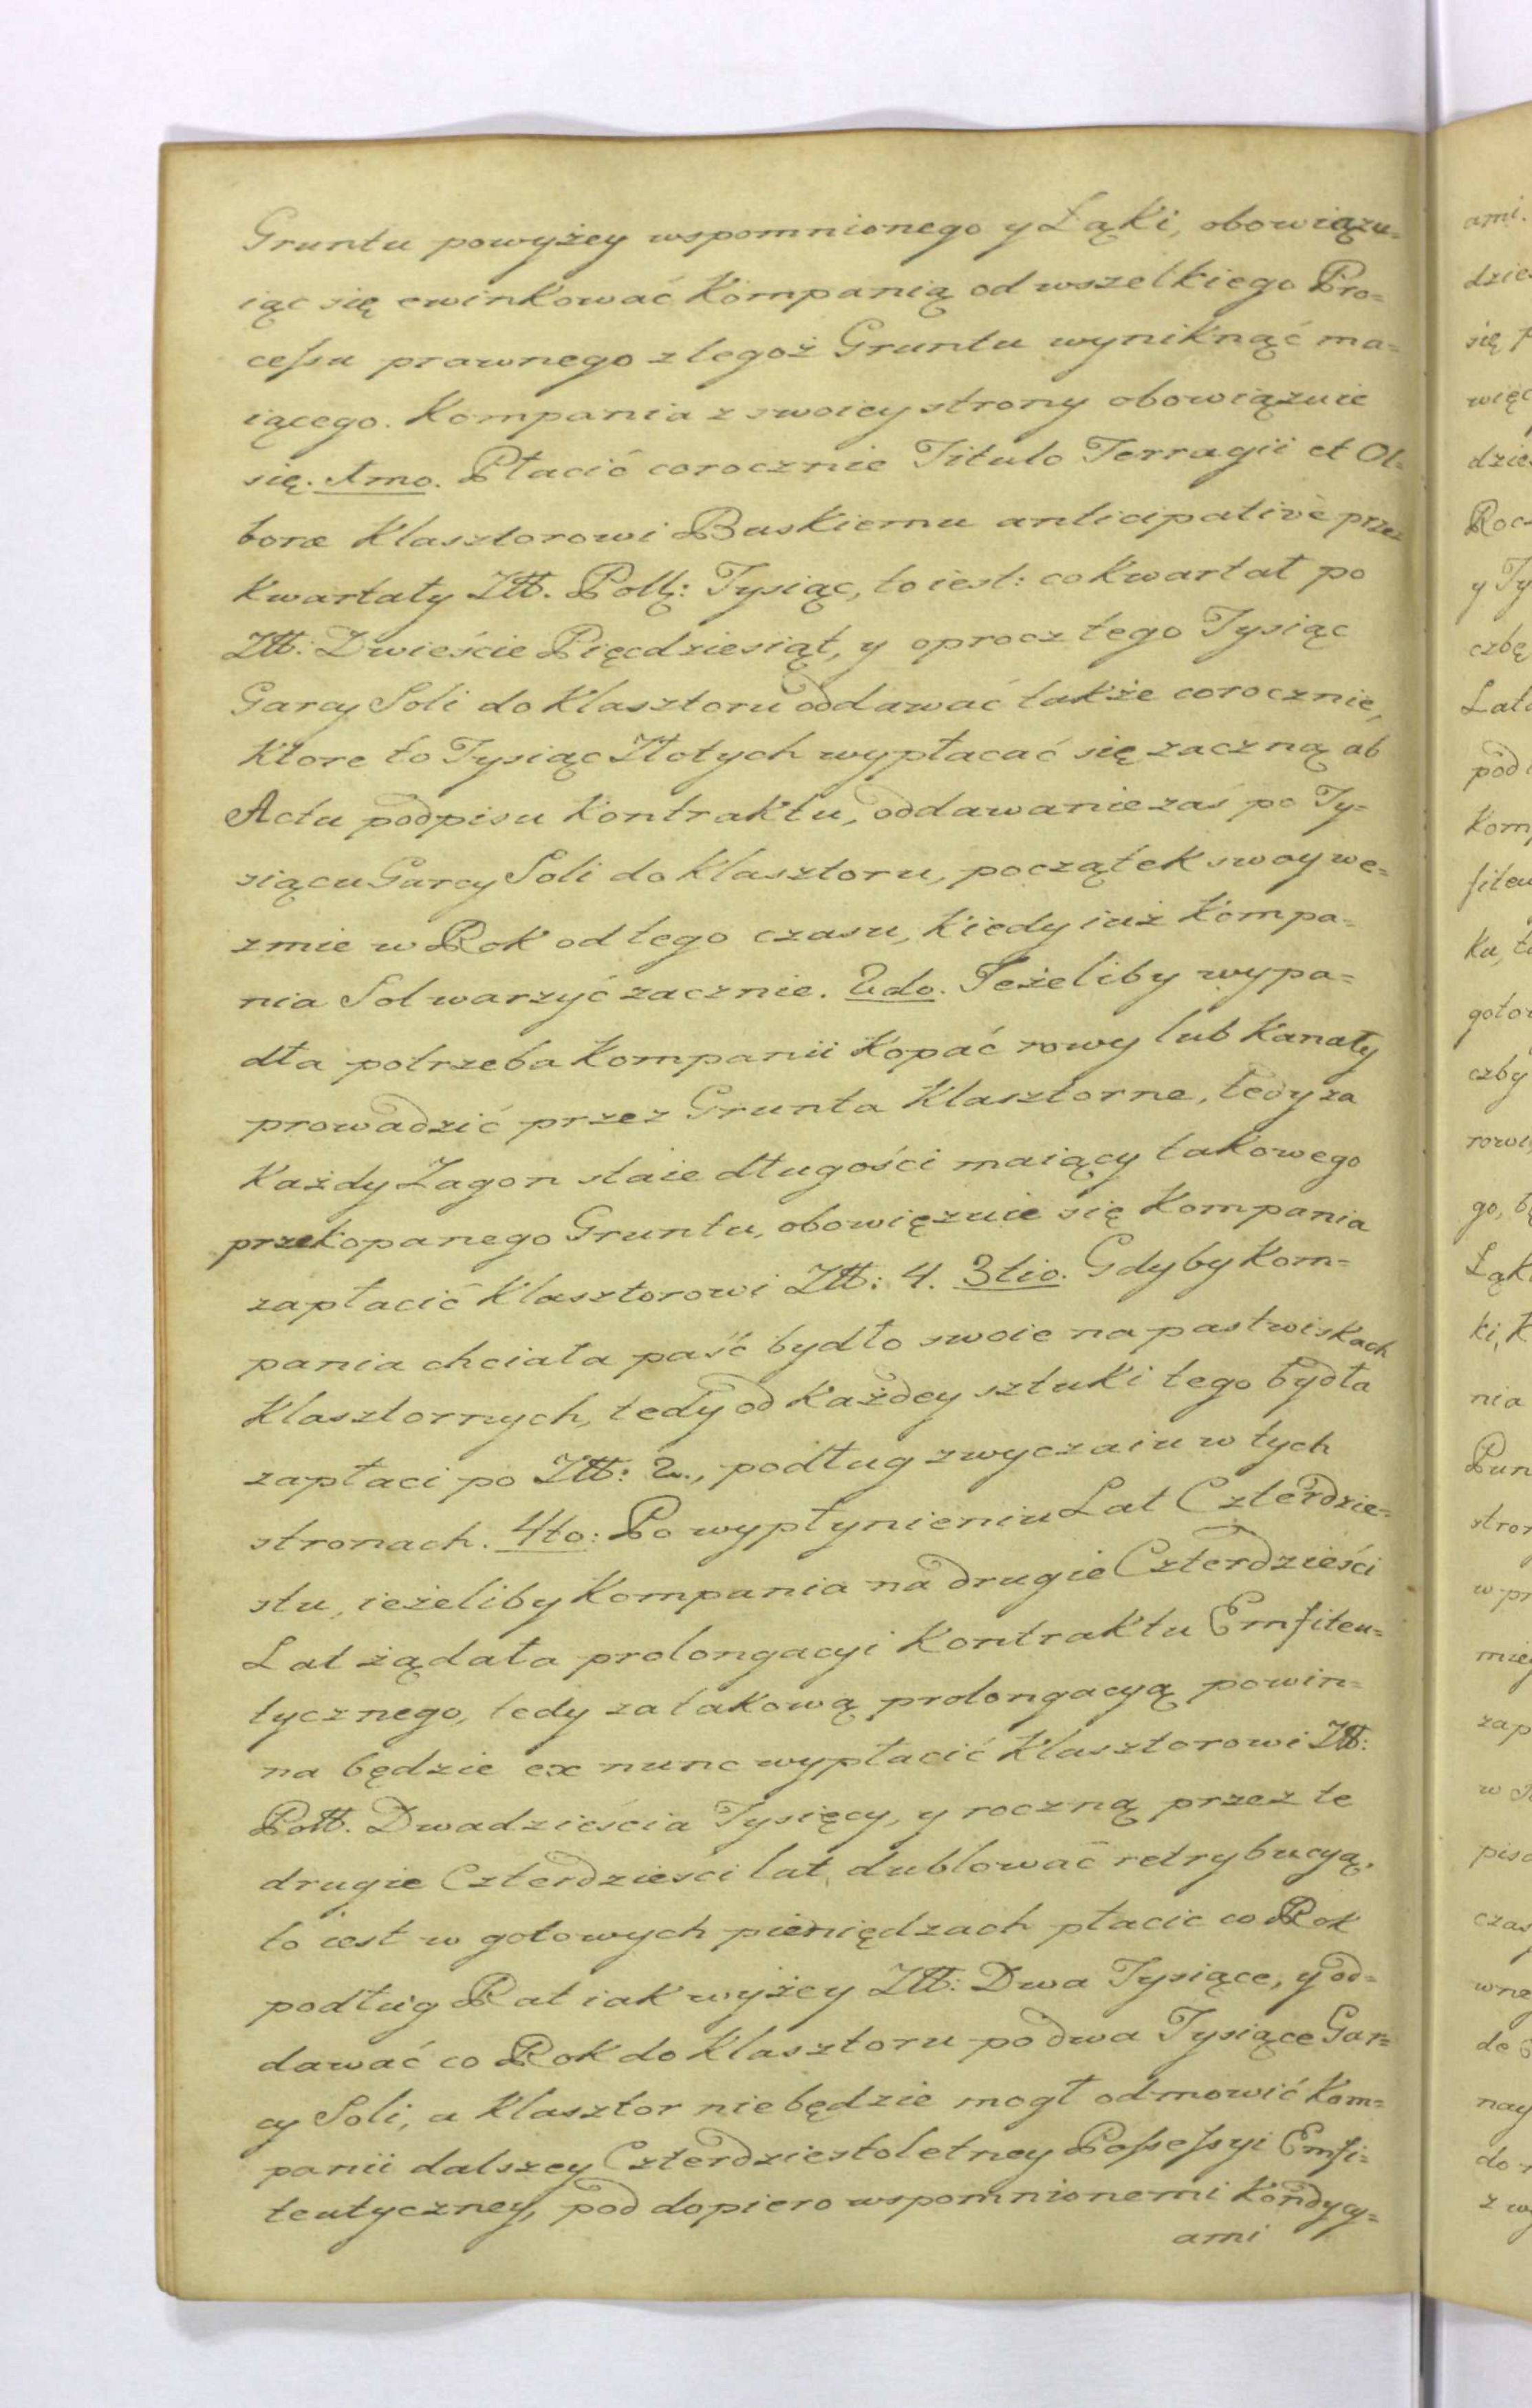 Gruntu powyżey wspomnionego y Łąki, obowiązu=
iąc się ewinkować Kompanią od wszelkiego Pro=
cessu prawnego z tegoż Gruntu wyniknąć ma=
iącego. Kompania z swoiey strony obowiązuie
się. 1mo. Płacić corocznie Titulo Terragii et Ol=
boræ Klasztorowi Buskiemu anticipativè przez
Kwartały Złł. Poll: Tysiąc, to iest: co Kwartał po
Złł: Dwieście Pięcdziesiąt, y oprocz tego Tysiąc
Garcy Soli do Klasztoru oddawać także corocznie,
Ktore to Tysiąc Złotych wypłacać się zaczną ab
Actu podpisu Kontraktu, oddawanie zaś po Ty=
siącu Garcy Soli do Klasztoru, początek swoy we=
zmie w Rok od tego czasu, Kiedy iuż Kompa=
nia Sol warzyć zacznie. 2do. Jeżeliby wypa=
dła potrzeba Kompanii Kopać rowy lub Kanały
prowadzić przez Grunta Klasztorne, tedy za
Każdy Zagon staie długości maiący takowego
przekopanego Gruntu, obowięzuie się Kompania
zapłacić Klasztorowi Złł: 4. 3tio. Gdyby Kom=
pania chciała paść bydło swoie na pastwiskach
Klasztornych, tedy od Każdey sztuki tego bydła
zapłaci po Złł: 2., podług zwyczaiu w tych
stronach. 4to: Po wypłynieniu Lat Czterdzie=
stu, ieżeliby Kompania na drugie Czterdzieści
Lat żądała prolongacyi Kontraktu Emfiteu=
tycznego, tedy za takową prolongacyą powin=
na będzie ex nunc wypłacić Klasztorowi Złł:
Poll. Dwadzieścia Tysięcy, y roczną przez te
drugie Czterdzieści lat dublować retrybucyą,
to iest w gotowych pieniędzach płacic co Rok
podług Rat iak wyżey Złł: Dwa Tysiące, y od=
dawać co Rok do Klasztoru po dwa Tysiące Gar=
cy Soli, a Klasztor nie będzie mogł odmowić Kom=
panii dalszey Czterdziestoletney Possessyi Emfi=
teutyczney, pod dopiero wspomnionemi Kondycy=
ami